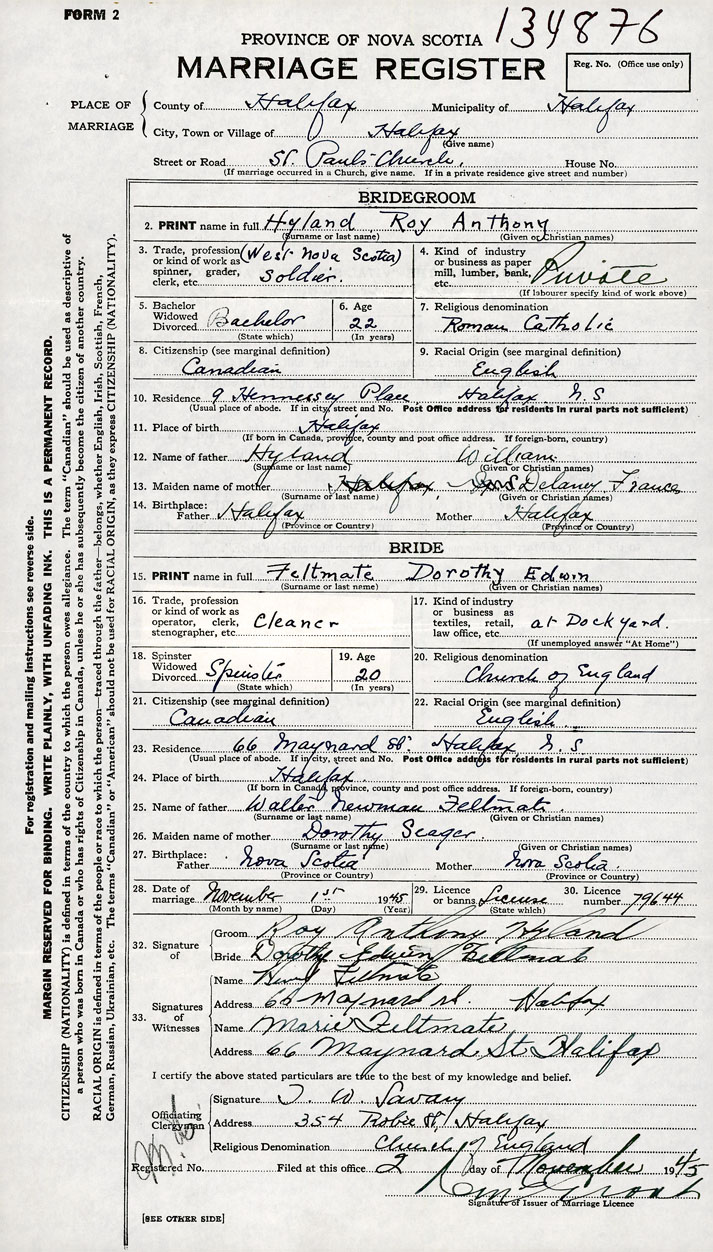 FORM 2
134876
PROVINCE OF NOVA SCOTIA
MARRIAGE REGISTER
Reg. No. (Office use only)
PLACE OF MARRIAGE
County of Halifax Municipality of Halifax
City, Town or Village of Halifax
(Give name)
Street or Road St. Pauls Church. House No.
(If marriage occurred in a Church, give name. If in a private residence give street and number)
BRIDEGROOM
2. PRINT name in full Hyland Roy Anthony
(Surname or last name) (Given or Christian names)
3. Trade, profession or kind of work as spinner, grader, clerk, etc. (West Nova Scotia) Soldier.
4. Kind of industry or business as paper mill, lumber, bank, etc. Private
(If labourer specify kind of work above)
5. Bachelor Widowed Divorced Bachelor
(State which)
6. Age 22
(In years)
7. Religious denomination
Roman Catholic
8. Citizenship (see marginal definition)
Canadian
9. Racial Origin (see marginal definition)
English
10. Residence 9 Hennessey Place Halifax N.S
(Usual place of abode. If in city, street and No. Post Office address for residents in rural parts not sufficient)
11. Place of birth Halifax
(If born in Canada, province, county and post office address. If foreign-born, country)
12. Name of father Hyland William
(Surname or last name) (Given or Christian names)
13. Maiden name of mother Halifax, Delaney Frances
(Surname or last name) (Given or Christian names)
14. Birthplace: Father Halifax Mother Halifax
(Province or Country) (Province or Country)
BRIDE
15. PRINT name in full Feltmate Dorothy Edwin
(Surname or last name) (Given or Christian names)
16. Trade, profession or kind of work as operator, clerk, stenographer, etc. Cleaner
17. Kind of industry or business as textiles, retail, law office, etc. at Dockyard.
(If unemployed answer "At Home")
18. Spinster Widowed Divorced Spinster
(State which)
19. Age 20
(In years)
20. Religious denomination
Church of England
21. Citizenship (see marginal definition)
Canadian
22. Racial Origin (see marginal definition)
English
23. Residence 66 Maynard St. Halifax N.S
(Usual place of abode. If in city, street and No. Post Office address for residents in rural parts not sufficient)
24. Place of birth Halifax
(If born in Canada, province, county and post office address. If foreign-born, country)
25. Name of father Walter Newman Feltmate
(Surname or last name) (Given or Christian names)
26. Maiden name of mother Dorothy Seager
(Surname or last name) (Given or Christian names)
27. Birthplace: Father Nova Scotia Mother Nova Scotia.
(Province or Country) (Province or Country)
28. Date of marriage November 1st 1945
(Month by name) (Day) (Year)
29. Licence or banns License
(State which)
30. Licence number 79644
32. Signature of
Groom Roy Anthony Hyland
Bride Dorothy Edwin Feltmate
33. Signatures of Witnesses
Name Feltmate
Address 66 Maynard St. Halifax
Name Marie Feltmate
Address 66 Maynard St Halifax
I certify the above stated particulars are true to the best of my knowledge and belief.
Officiating Clergyman
Signature T. W. Savary
Address 354 Robie St, Halifax
Religious Denomination Church of England
Registered No. Filed at this office 2 day of November 1945
Signature of Issuer of Marriage Licence
[SEE OTHER SIDE]
For registration and mailing instructions see reverse side.
MARGIN RESERVED FOR BINDING. WRITE PLAINLY, WITH UNFADING INK. THIS IS A PERMANENT RECORD.
CITIZENSHIP (NATIONALITY) is defined in terms of the country to which the person owes allegiance. The term "Canadian" should be used as descriptive of
a person who was born in Canada or who has rights of Citizenship in Canada, unless he or she has subsequently become the citizen of another country.
RACIAL ORIGIN is defined in terms of the people or race to which the person—traced through the father—belongs, whether English, Irish, Scottish, French,
German, Russian, Ukrainian, etc. The terms "Canadian" or "American" should not be used for RACIAL ORIGIN, as they express CITIZENSHIP (NATIONALITY).